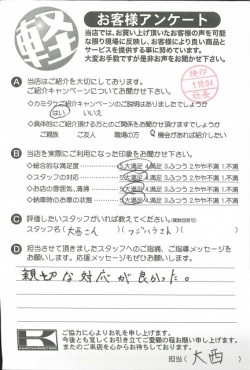 軽
お客様アンケート
当店では、お買い上げ頂いたお客様の声を可能
な限り現場に反映し、お客様により良い商品と
サービスを提供する事に努めています。
大変お手数ですが是非お声をお聞かせ下さい。
A 当店はご紹介を大切にしております。
ご紹介キャンペーンについてお聞かせ下さい。
検印
1.10.04
社長
◇カミタケご紹介キャンペーンのご説明はありましたでしょうか
はい いいえ
◇具体的にご紹介頂ける方とのご関係をお聞かせ頂けますでしょうか
ご親族 ご友人 職場の方 機会があれば紹介したい
B 当店を実際にご利用になった印象をお聞かせ下さい。
◇総合的な満足度 5.大満足 4.満足 3.ふつう 2.やや不満 1.不満
◇スタッフの対応 5.大満足 4.満足 3.ふつう 2.やや不満 1.不満
◇お店の雰囲気、清掃 5.大満足 4.満足 3.ふつう 2.やや不満 1.不満
◇納車時のお車の状態 5.大満足 4.満足 3.ふつう 2.やや不満 1.不満
C 評価したいスタッフがいれば教えてください。(複数回答可)
スタッフ名(大西さん)(
D 担当させて頂きましたスタッフへのご感想、ご指導メッセージを
お願いします。応援メッセージもぜひお願いします。
親切な対応が良かった。
ご協力に心よりお礼を申し上げます。
今後とも宜しくお引き立てご愛顧の程お願い申し上げます。
またのご来店を心からお待ちしております。
担当(大西)